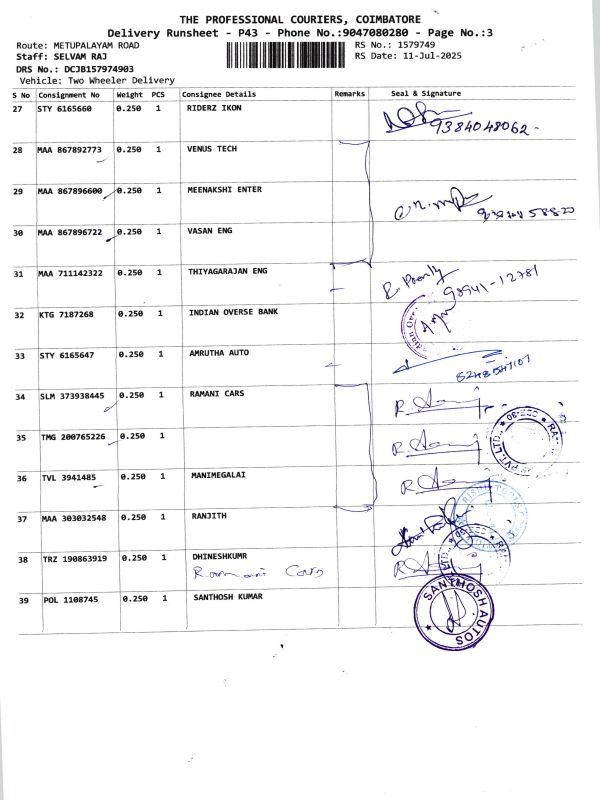 THE PROFESSIONAL COURIERS, COIMBATORE
Delivery Runsheet - P43 - Phone No.:9047080280 - Page No.:3
Route: METUPALAYAM ROAD
RS No.: 1579749
Staff: SELVAM RAJ
RS Date: 11-Jul-2025
DRS No.: DCJB157974903
Vehicle: Two Wheeler Delivery
S No Consignment No Weight PCS Consignee Details Remarks Seal & Signature
27 STY 6165660 0.250 1 RIDERZ IKON
9384048062-
28 MAA 867892773 0.250 1 VENUS TECH
29 MAA 867896600 0.250 1 MEENAKSHI ENTER
30 MAA 867896722 0.250 1 VASAN ENG
31 MAA 711142322 0.250 1 THIYAGARAJAN ENG
98941-12781
32 KTG 7187268 0.250 1 INDIAN OVERSE BANK
33 STY 6165647 0.250 1 AMRUTHA AUTO
34 SLM 373938445 0.250 1 RAMANI CARS
35 TMG 200765226 0.250 1
36 TVL 3941485 0.250 1 MANIMEGALAI
37 MAA 303032548 0.250 1 RANJITH
38 TRZ 190863919 0.250 1 DHINESHKUMR
Ramani Cars
39 POL 1108745 0.250 1 SANTHOSH KUMAR
SANTHOSH AUTOS